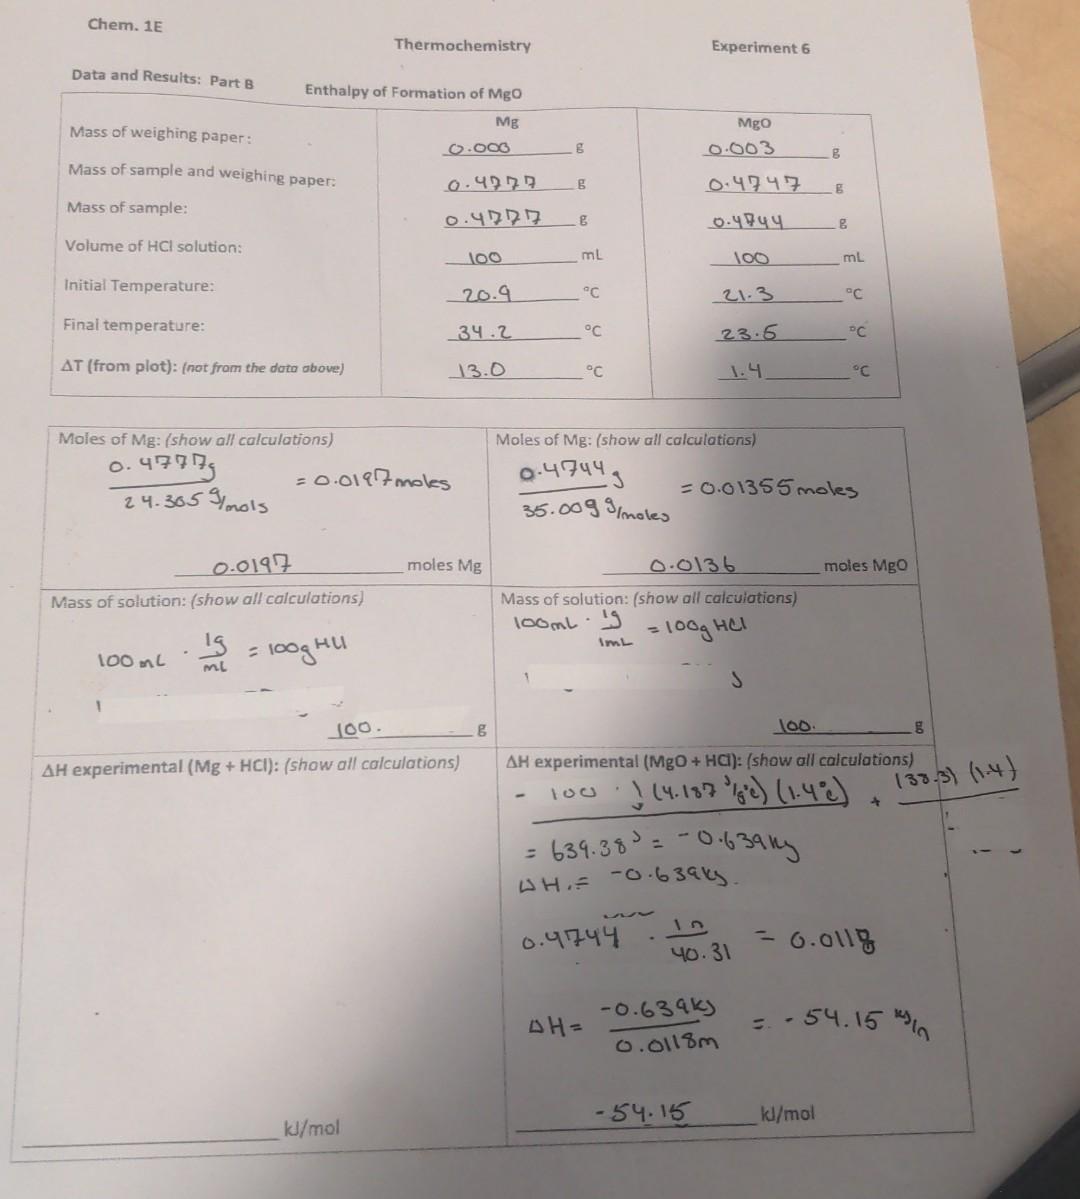 Chem. 1E
Thermochemistry
Experiment 6
Data and Results: Part B
Enthalpy of Formation of MgO
Mg
MgO
Mass of weighing paper: 0.000 g 0.003 g
Mass of sample and weighing paper: 0.4777 g 0.4747 g
Mass of sample: 0.4777 g 0.4744 g
Volume of HCl solution: 100 mL 100 mL
Initial Temperature: 20.9 °C 21.3 °C
Final temperature: 34.2 °C 23.5 °C
ΔT (from plot): (not from the data above) 13.0 °C 1.4 °C
Moles of Mg: (show all calculations)
0.4777g
24.305 g/mols
= 0.0197 moles
0.0197 moles Mg
Moles of Mg: (show all calculations)
0.4744 g
35.009 g/moles
= 0.01355 moles
0.0136 moles MgO
Mass of solution: (show all calculations)
100 mL · 1g/mL = 100g HCl
100. g
Mass of solution: (show all calculations)
100mL · 1g/1mL = 100g HCl
100. g
ΔH experimental (Mg + HCl): (show all calculations)
kJ/mol
ΔH experimental (MgO + HCl): (show all calculations)
- 100 (4.187 J/g°c) (1.4°c) + (38.3) (1.4)
= 639.38 J = -0.639 kJ
ΔH = -0.639 kJ.
0.4744 · 1n/40.31 = 0.0118
ΔH = -0.639kJ/0.0118m = -54.15 kJ/n
-54.15 kJ/mol